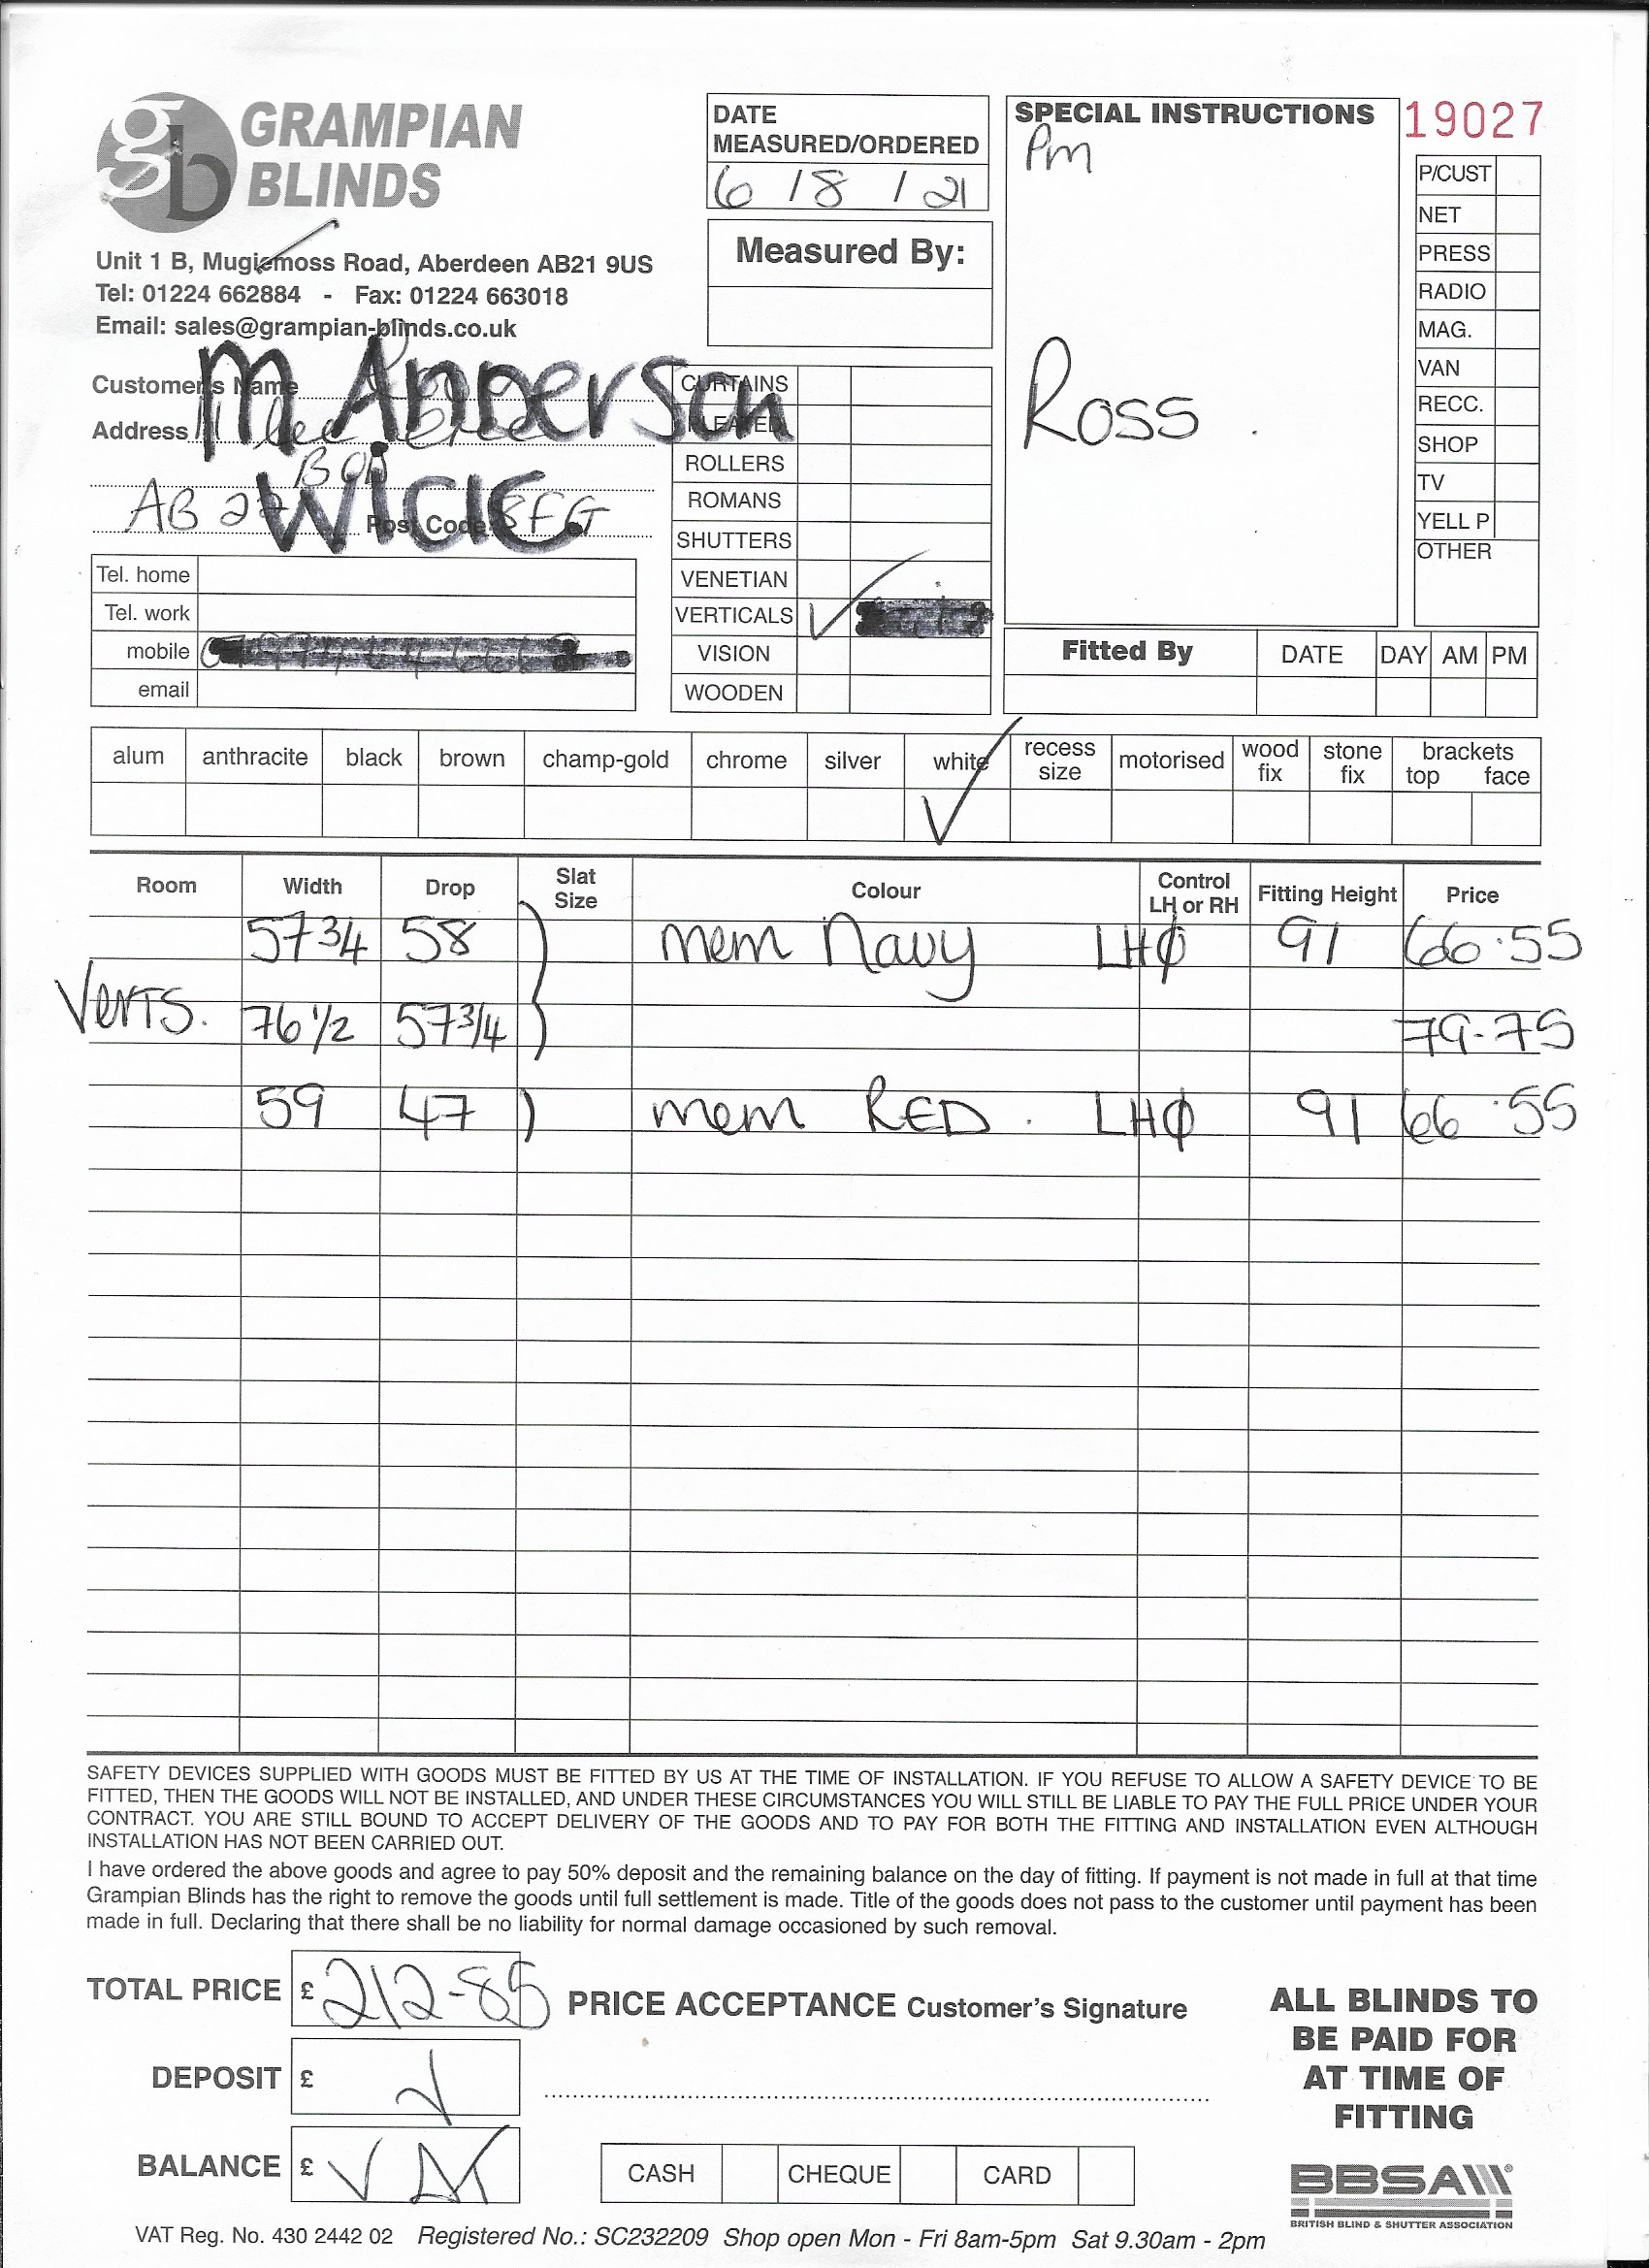 gb GRAMPIAN
BLINDS
Unit 1 B, Mugiemoss Road, Aberdeen AB21 9US
Tel: 01224 662884 - Fax: 01224 663018
Email: sales@grampian-blinds.co.uk
DATE
MEASURED/ORDERED
6 / 8 / 21
Measured By:
SPECIAL INSTRUCTIONS
Pm
Ross.
19027
P/CUST
NET
PRESS
RADIO
MAG.
VAN
RECC.
SHOP
TV
YELL P
OTHER
Customer's Name
M Anderson
Address
WICK
AB 22 Post Code 8FG
Tel. home
Tel. work
mobile
email
CURTAINS
PLEATED
ROLLERS
ROMANS
SHUTTERS
VENETIAN
VERTICALS ✓
VISION
WOODEN
Fitted By DATE DAY AM PM
alum anthracite black brown champ-gold chrome silver white recess size motorised wood fix stone fix brackets top face
✓
Room Width Drop Slat Size Colour Control LH or RH Fitting Height Price
57 3/4 58 mem Navy LHO 91 66.55
Verts. 76 1/2 57 3/4 79-75
59 47 mem RED. LHO 91 66.55
SAFETY DEVICES SUPPLIED WITH GOODS MUST BE FITTED BY US AT THE TIME OF INSTALLATION. IF YOU REFUSE TO ALLOW A SAFETY DEVICE TO BE
FITTED, THEN THE GOODS WILL NOT BE INSTALLED, AND UNDER THESE CIRCUMSTANCES YOU WILL STILL BE LIABLE TO PAY THE FULL PRICE UNDER YOUR
CONTRACT. YOU ARE STILL BOUND TO ACCEPT DELIVERY OF THE GOODS AND TO PAY FOR BOTH THE FITTING AND INSTALLATION EVEN ALTHOUGH
INSTALLATION HAS NOT BEEN CARRIED OUT.
I have ordered the above goods and agree to pay 50% deposit and the remaining balance on the day of fitting. If payment is not made in full at that time
Grampian Blinds has the right to remove the goods until full settlement is made. Title of the goods does not pass to the customer until payment has been
made in full. Declaring that there shall be no liability for normal damage occasioned by such removal.
TOTAL PRICE £ 212-85
PRICE ACCEPTANCE Customer's Signature
DEPOSIT £ ✓
BALANCE £ ✓
CASH CHEQUE CARD
ALL BLINDS TO
BE PAID FOR
AT TIME OF
FITTING
BBSA
BRITISH BLIND & SHUTTER ASSOCIATION
VAT Reg. No. 430 2442 02 Registered No.: SC232209 Shop open Mon - Fri 8am-5pm Sat 9.30am - 2pm